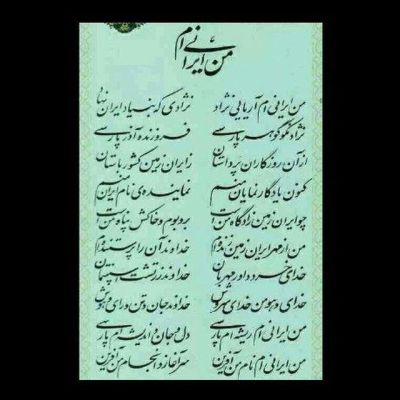 من ایرانی ام
من ایرانی ام آریایی نژاد نژادی که بنیاد ایران نهاد
نژاد نکو گوهر پارسی فروزنده آذر پارسی
از آن روزگاران پر داستان ز ایران زمین کشور باستان
کنون یادگار نمایان منم نماینده‌ی نام ایران منم
چو ایران زمین زادگاه من است بر و بوم و خاکش پناه من است
من از مهر ایران زمین زنده‌ام خداوند آن را پرستنده‌ام
خدای خرد داور مهربان خداوند زرتشت اسپنتمان
خدای وهومن خدای سروش خداوند جان و تن و رای و هوش
من ایرانی ام ریشه ام پارسی دل و جان و اندیشه ام پارسی
من ایرانی ام نام من آفرین سرآغاز و انجام من آفرین